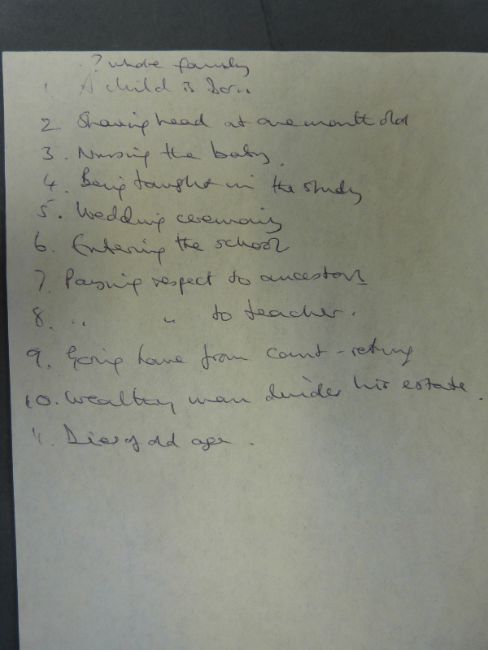 ? whole family
1. A child is born
2. Shaving head at one month old
3. Nursing the baby.
4. Being taught in the study
5. Wedding ceremony
6. Entering the school
7. Paying respect to ancestors
8. " " to teacher.
9. Going home from court - retiring
10. Wealthy man divides his estate.
11. Dies of old age.